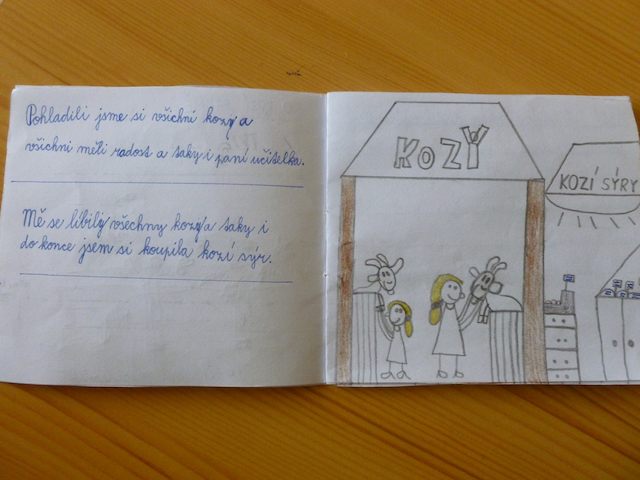 Pohladili jsme si všichni kozy a
všichni měli radost a taky i paní učitelka.
Mě se líbily všechny kozy a taky i
do konce jsem si koupila kozí sýr.
KOZY
KOZÍ SÝRY